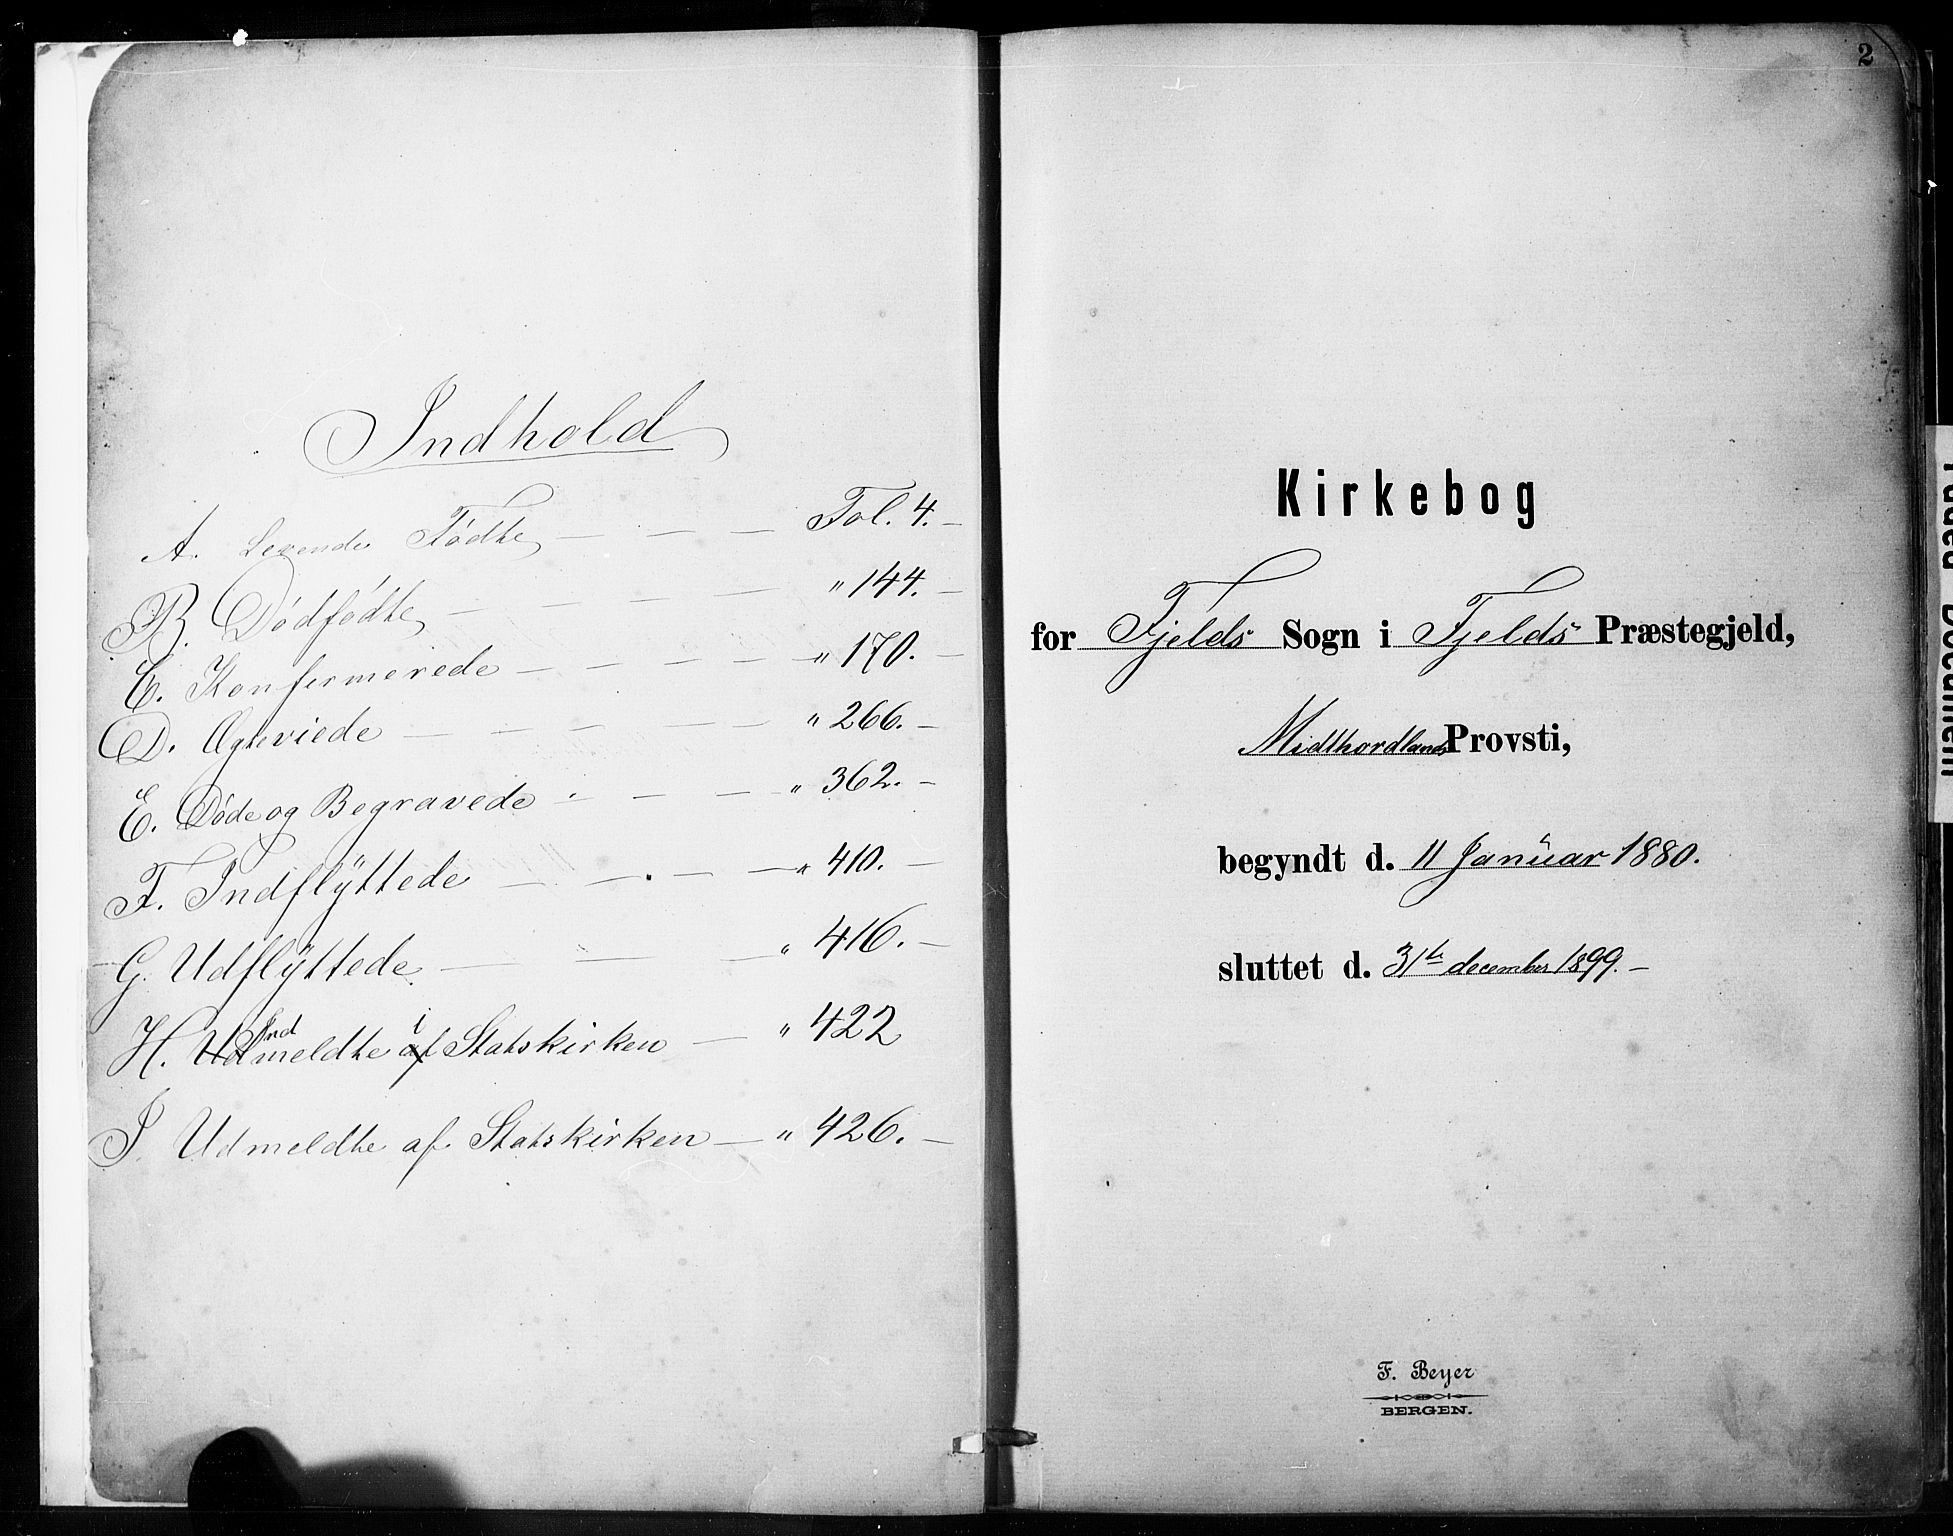 Indhold
A. Levende Fødte — — — Fol. 4. —
B. Dødfødte — — — — " 144. —
C. Konfermerede — — — — " 170. —
D. Ægteviede — — — — " 266. —
E. Døde og Begravede — — — " 362. —
F. Indflÿttede — — — — " 410. —
G. Udflÿttede — — — " 416. —
Ind i
H. Udmeldte af Statskirken — " 422
I. Udmeldte af Statskirken — " 426. —
2
Kirkebog
for Fjelds Sogn i Fjelds Præstegjeld,
Midthordlands Provsti,
begyndt d. 11 Januar 1880.
sluttet d. 31te december 1899. —
F. Beyer
BERGEN.